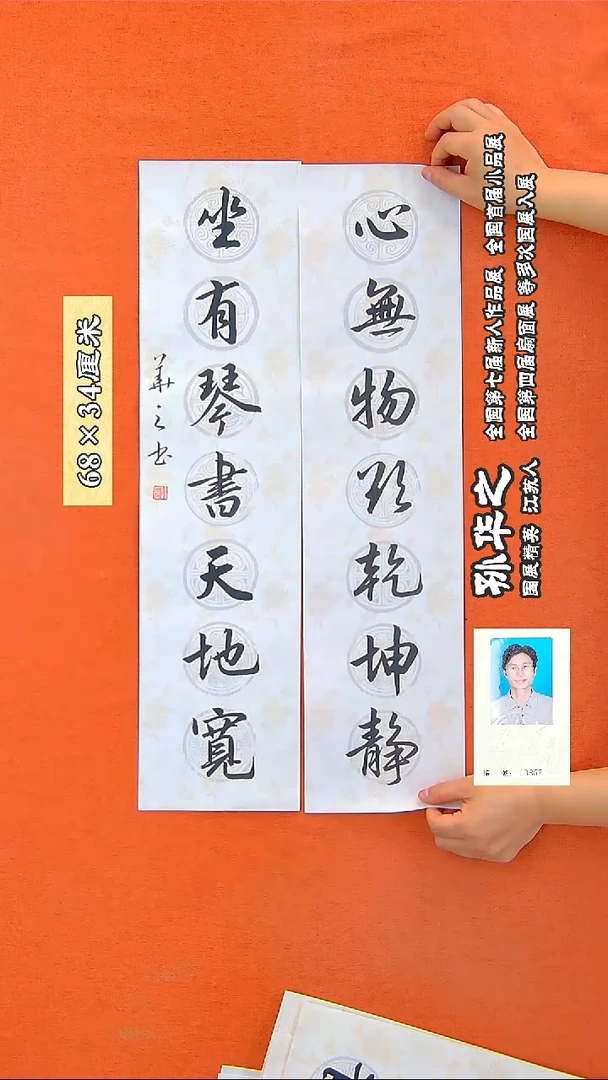 心無物欲乾坤静
坐有琴書天地寬
華之书
68×34厘米
孙华之
国展精英 江苏人
全国第七届新人作品展 全国首届小品展
全国第四届扇面展 等多次国展入展